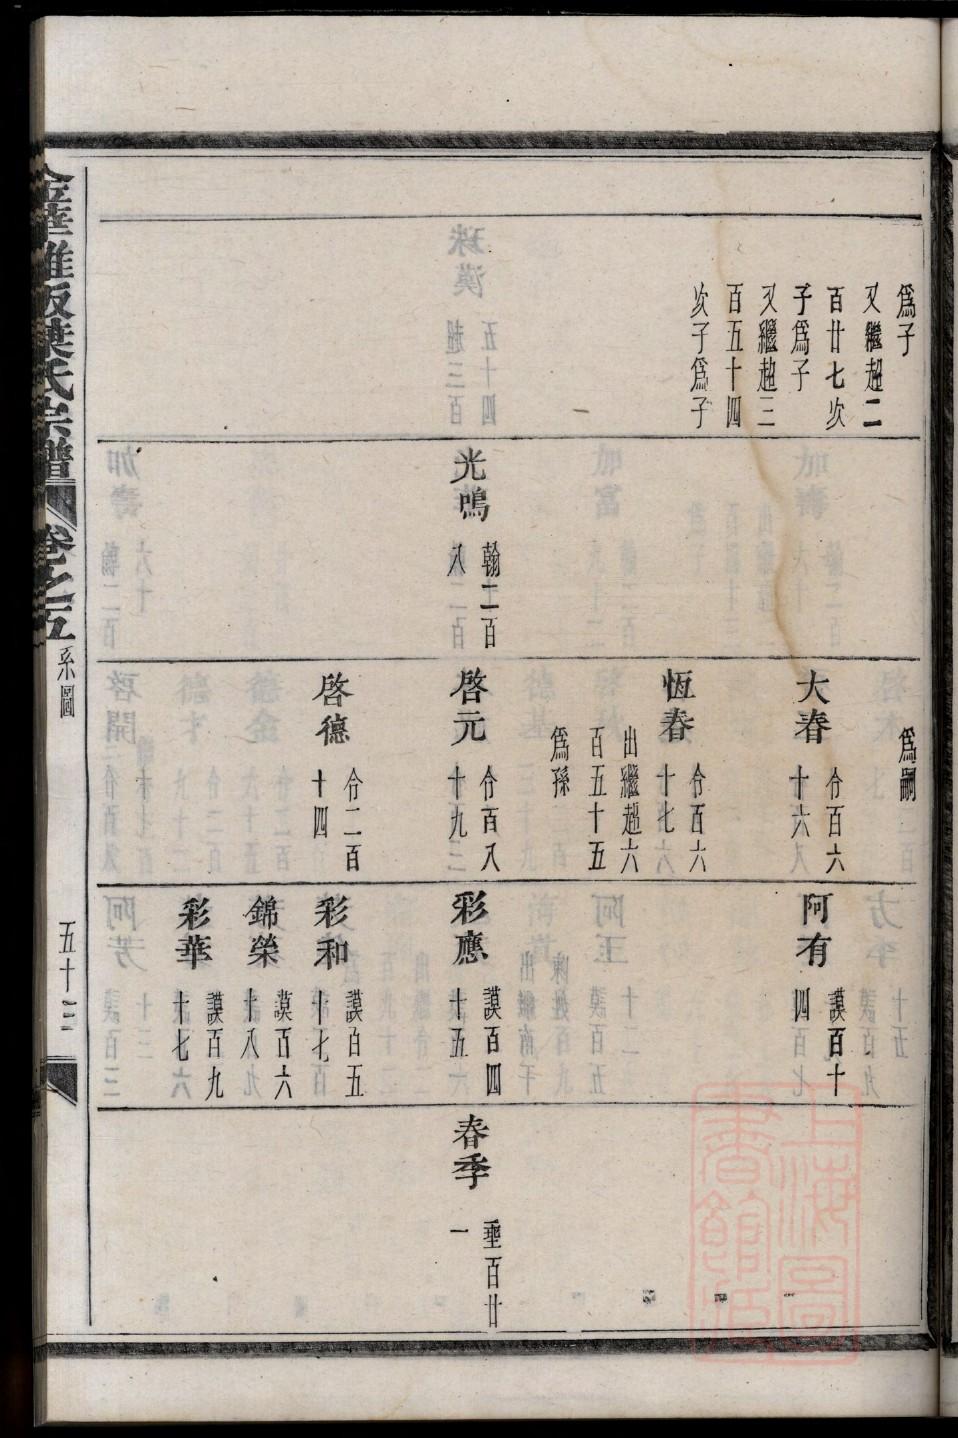 為子
又繼超二
百廿七次
子為子
又繼超三
百五十四
次子為子
光鳴
翰二百
八
為嗣
大春
仱百六
十六
恆春
仱百六
十七
出繼超六
百五十五
為孫
啓元
仱百八
十九
啓德
仱二百
十四
阿有
謨百十
四
彩應
謨百四
十五
彩和
謨百五
十七
錦榮
謨百六
十八
彩華
謨百九
十七
春季
百廿
一
葉氏宗譜
卷之五
系圖
五十三